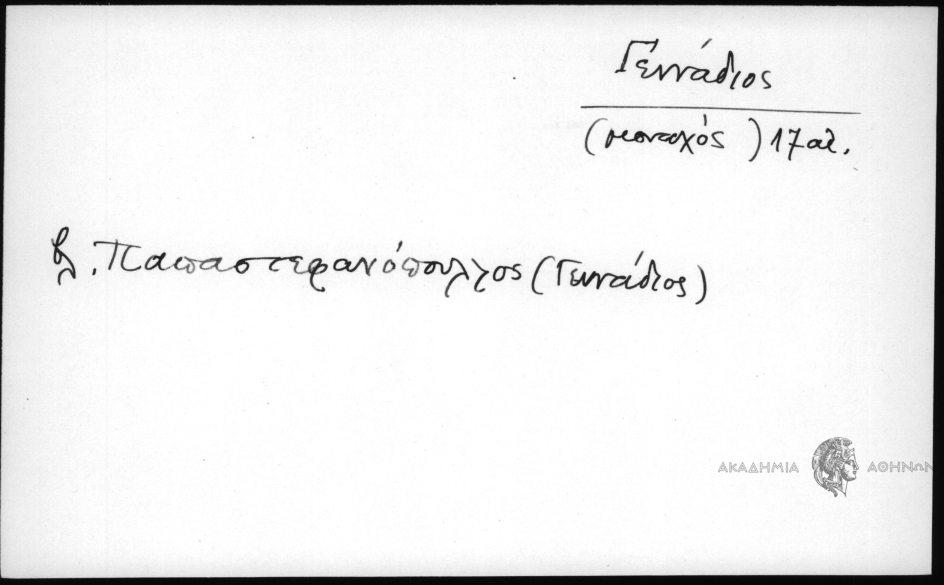 Γεννάδιος
(μοναχός) 17 αἰ.
βλ. Παπαστεφανόπουλλος (Γεννάδιος)
ΑΚΑΔΗΜΙΑ ΑΘΗΝΩΝ